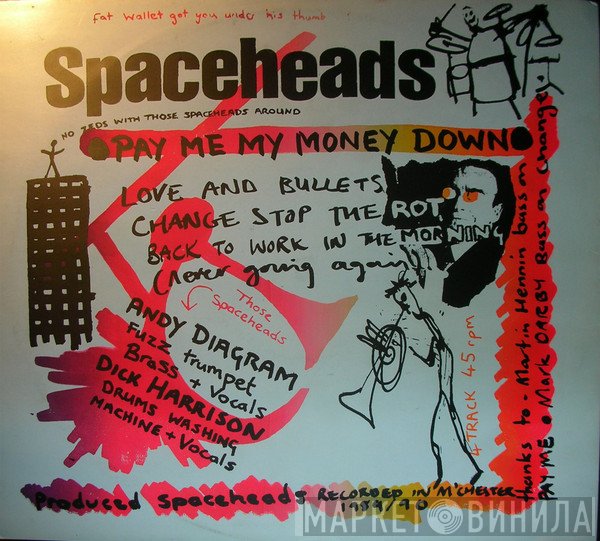 fat wallet got you under his thumb
Spaceheads
NO ZEDS WITH THOSE SPACEHEADS AROUND
PAY ME MY MONEY DOWN
LOVE AND BULLETS
CHANGE STOP THE ROT
BACK TO WORK IN THE MORNING
(never going again)
Those
Spaceheads
ANDY DIAGRAM
Fuzz trumpet
Brass + Vocals
DICK HARRISON
DRUMS WASHING
MACHINE + Vocals
4 TRACK 45 rpm
thanks to - Martin Hennin bass on
PAY ME • Mark DARBY Bass on change.
Produced Spaceheads RECORDED IN M'CHESTER
1989/90
МАРКЕТ ВИНИЛА